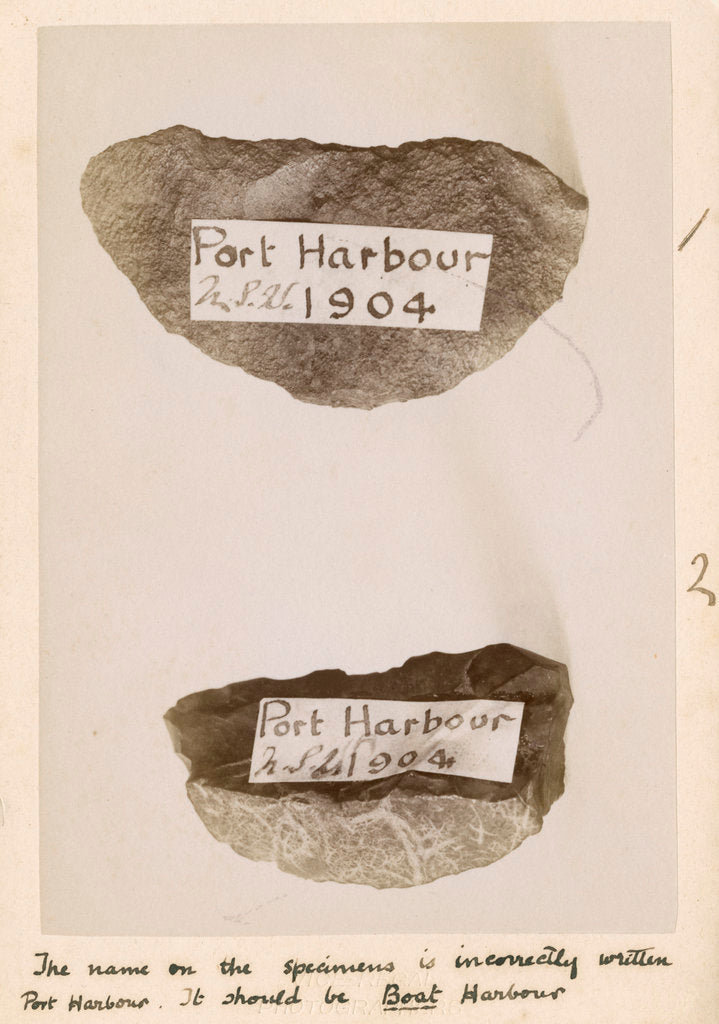 Port Harbour
N.S.W. 1904
1
2
Port Harbour
N.S.W. 1904
The name on the specimens is incorrectly written
Port Harbour. It should be Boat Harbour